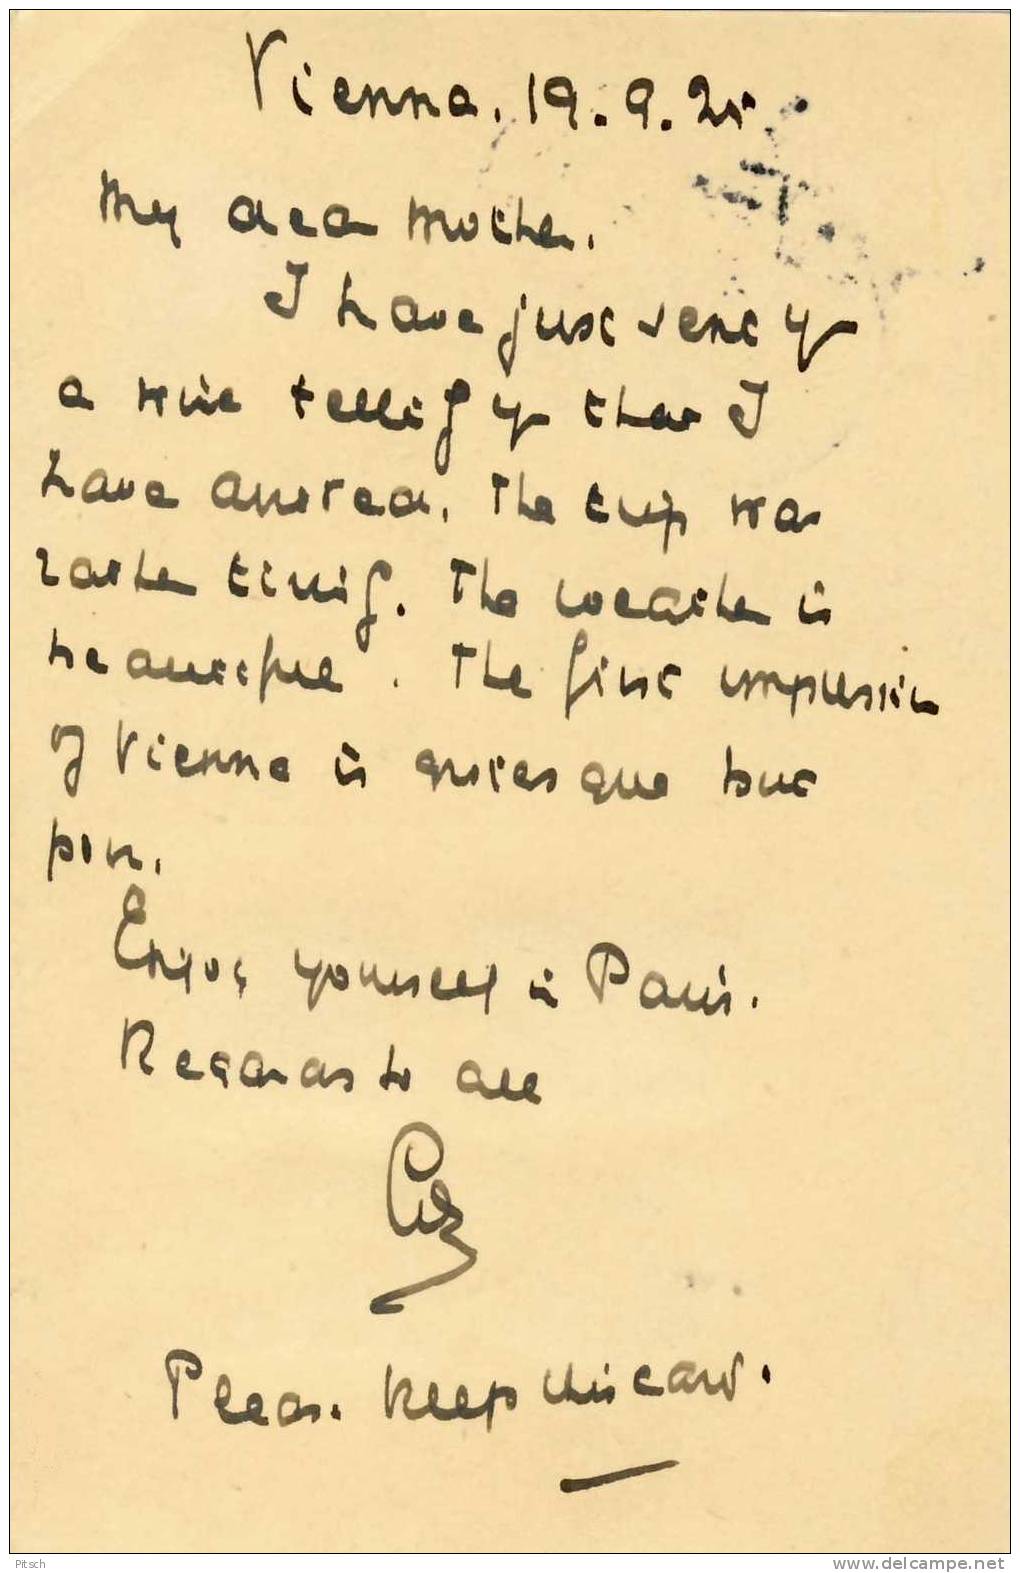 Vienna. 19. 9. 25.
My dear Mother.
I have just sent you
a wire telling you that I
have arrived. The trip was
rather tiring. The weather is
beautiful. The first impression
of Vienna is grotesque but
Enjoy yourself in Paris.
Regards to all
Please keep this card.
Pitsch
www.delcampe.net